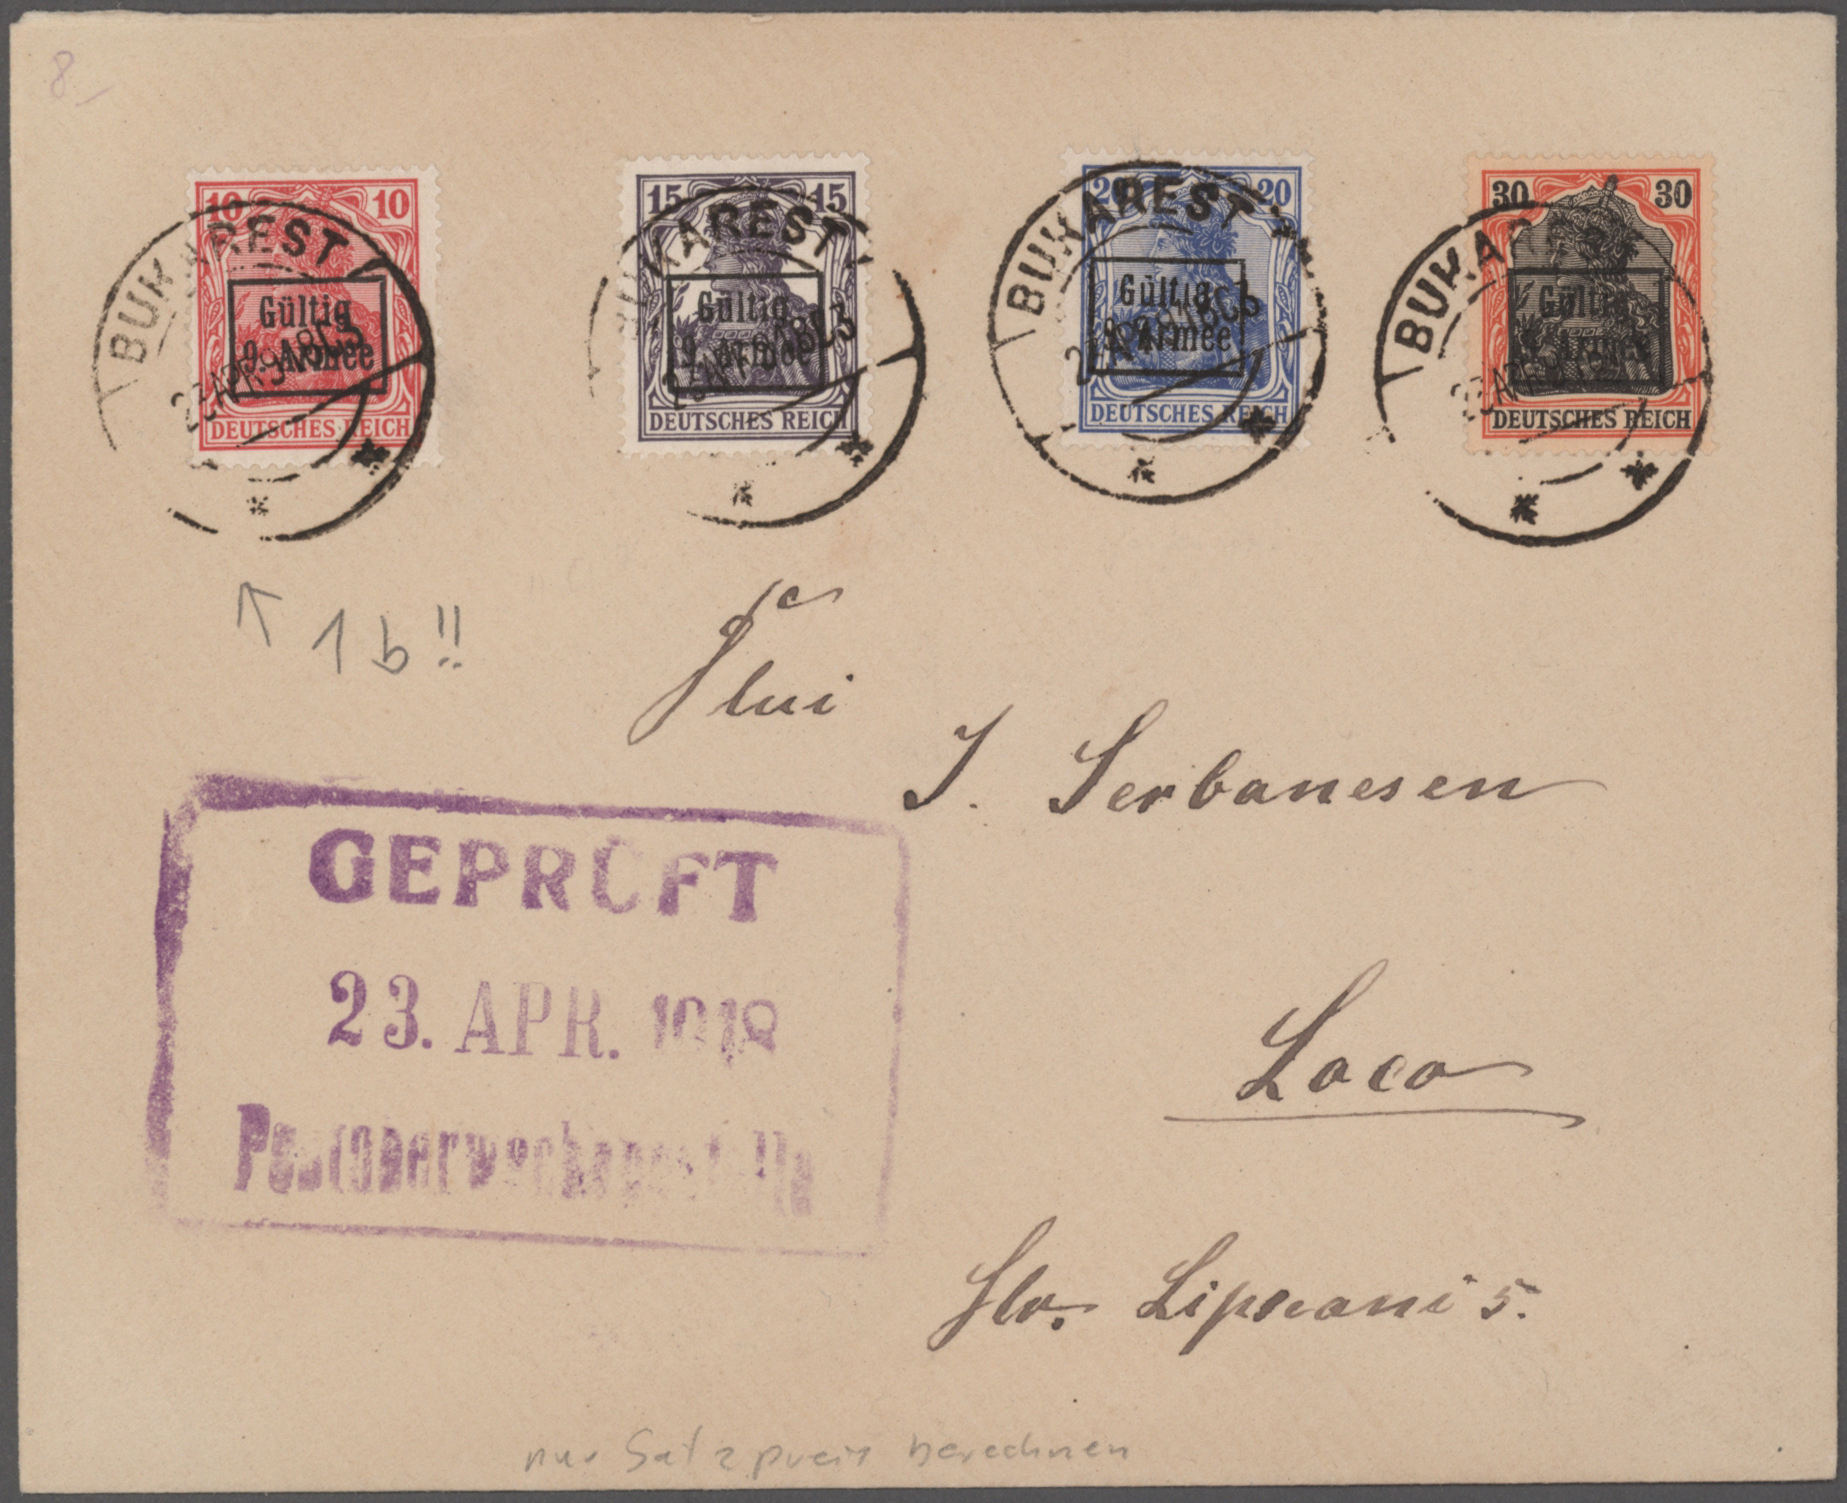 8
10 10
DEUTSCHES REICH
Gültig
9. Armee
BUKAREST
15 15
DEUTSCHES REICH
Gültig
9. Armee
BUKAREST
20 20
DEUTSCHES REICH
Gültig
9. Armee
BUKAREST
30 30
DEUTSCHES REICH
Gültig
9. Armee
BUKAREST
1 b!!
J. Serbanescu
GEPRÜFT
23. APR. 1918
Postüberwachungsstelle
Loco
Str. Lipscani 5.
nur Satzpreis berechnen